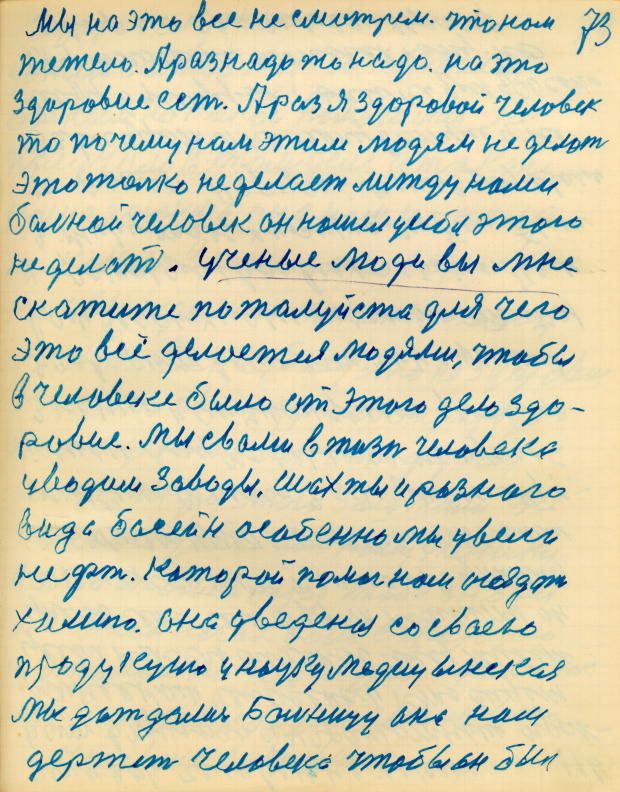 Мы на это все не смотрем. что ном 73
тежело. А раз надо то надо. на это
здоровие ест. А раз я здоровой человек
то почему нам этим людям не делат
это толко не делает между нами
болной человек он нашел у себя этого
не делат. ученые люди вы мне
скажите пожалуйста для чего
это всё делоется людями, чтобы
в человеке было от этого дело здо-
ровие. Мы с вами в жизн человека
уводим заводы. шахты и разного
вида басейн особенно мы увели
нефт. Которой помог ном
химию. она уведеная со своею
продукцию у науку медицынская
Мы дождались Болницу она нам
держит человека чтобы он был